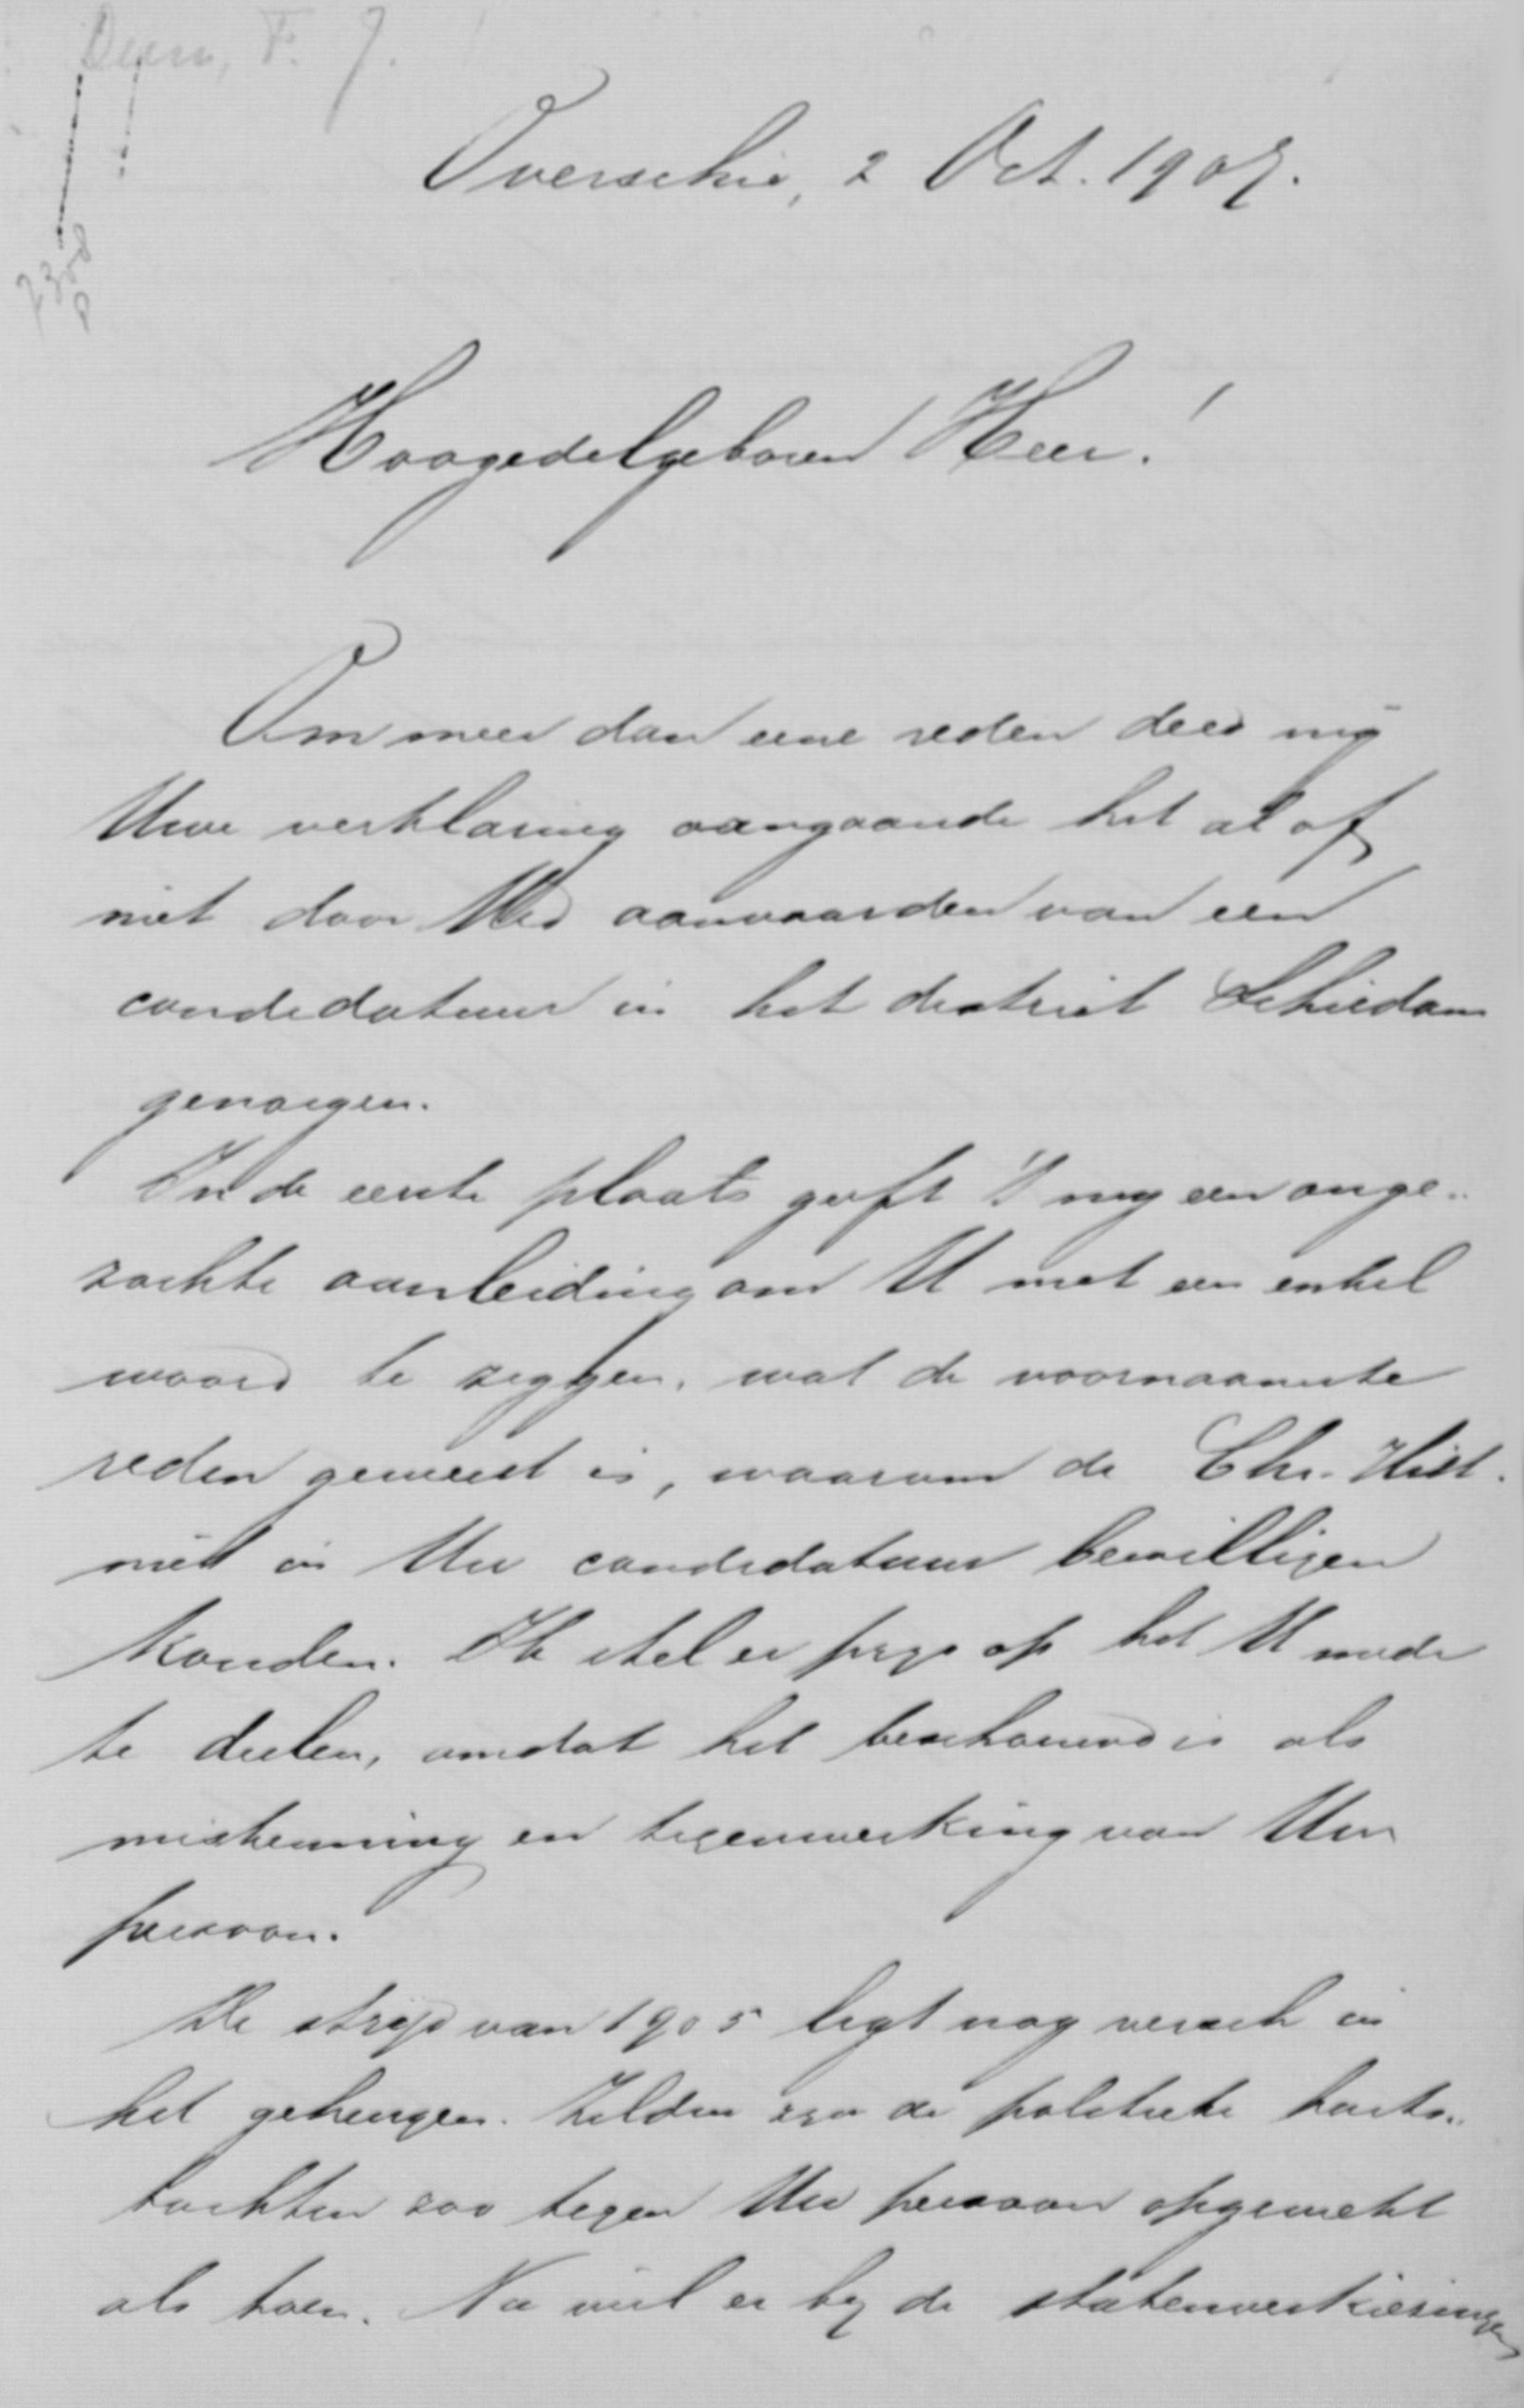 F. J.
Overschie, 2 Oct. 1907.
Hoogedelgeboren Heer!
Om meer dan eene reden deed mij
Uwe verklaring aangaande het al of
niet door U aanvaarden van een
candidatuur in het district Schiedam
genoegen.
In de eerste plaats geeft 't mij een onge-
zochte aanleiding om U met een enkel
woord te zeggen, wat de voornaamste
reden geweest is, waarom de Chr. Hist.
niet in Uw candidatuur bewilligen
konden. Ik stel er prijs op het U mede
te deelen, omdat het beschouwd is als
miskenning en tegenwerking van Uw
persoon.
De strijd van 1905 ligt nog versch in
het geheugen. Zelden zijn de politieke harts-
tochten zoo tegen Uw persoon opgewekt
als toen. Nu viel er bij de statenverkiezingen